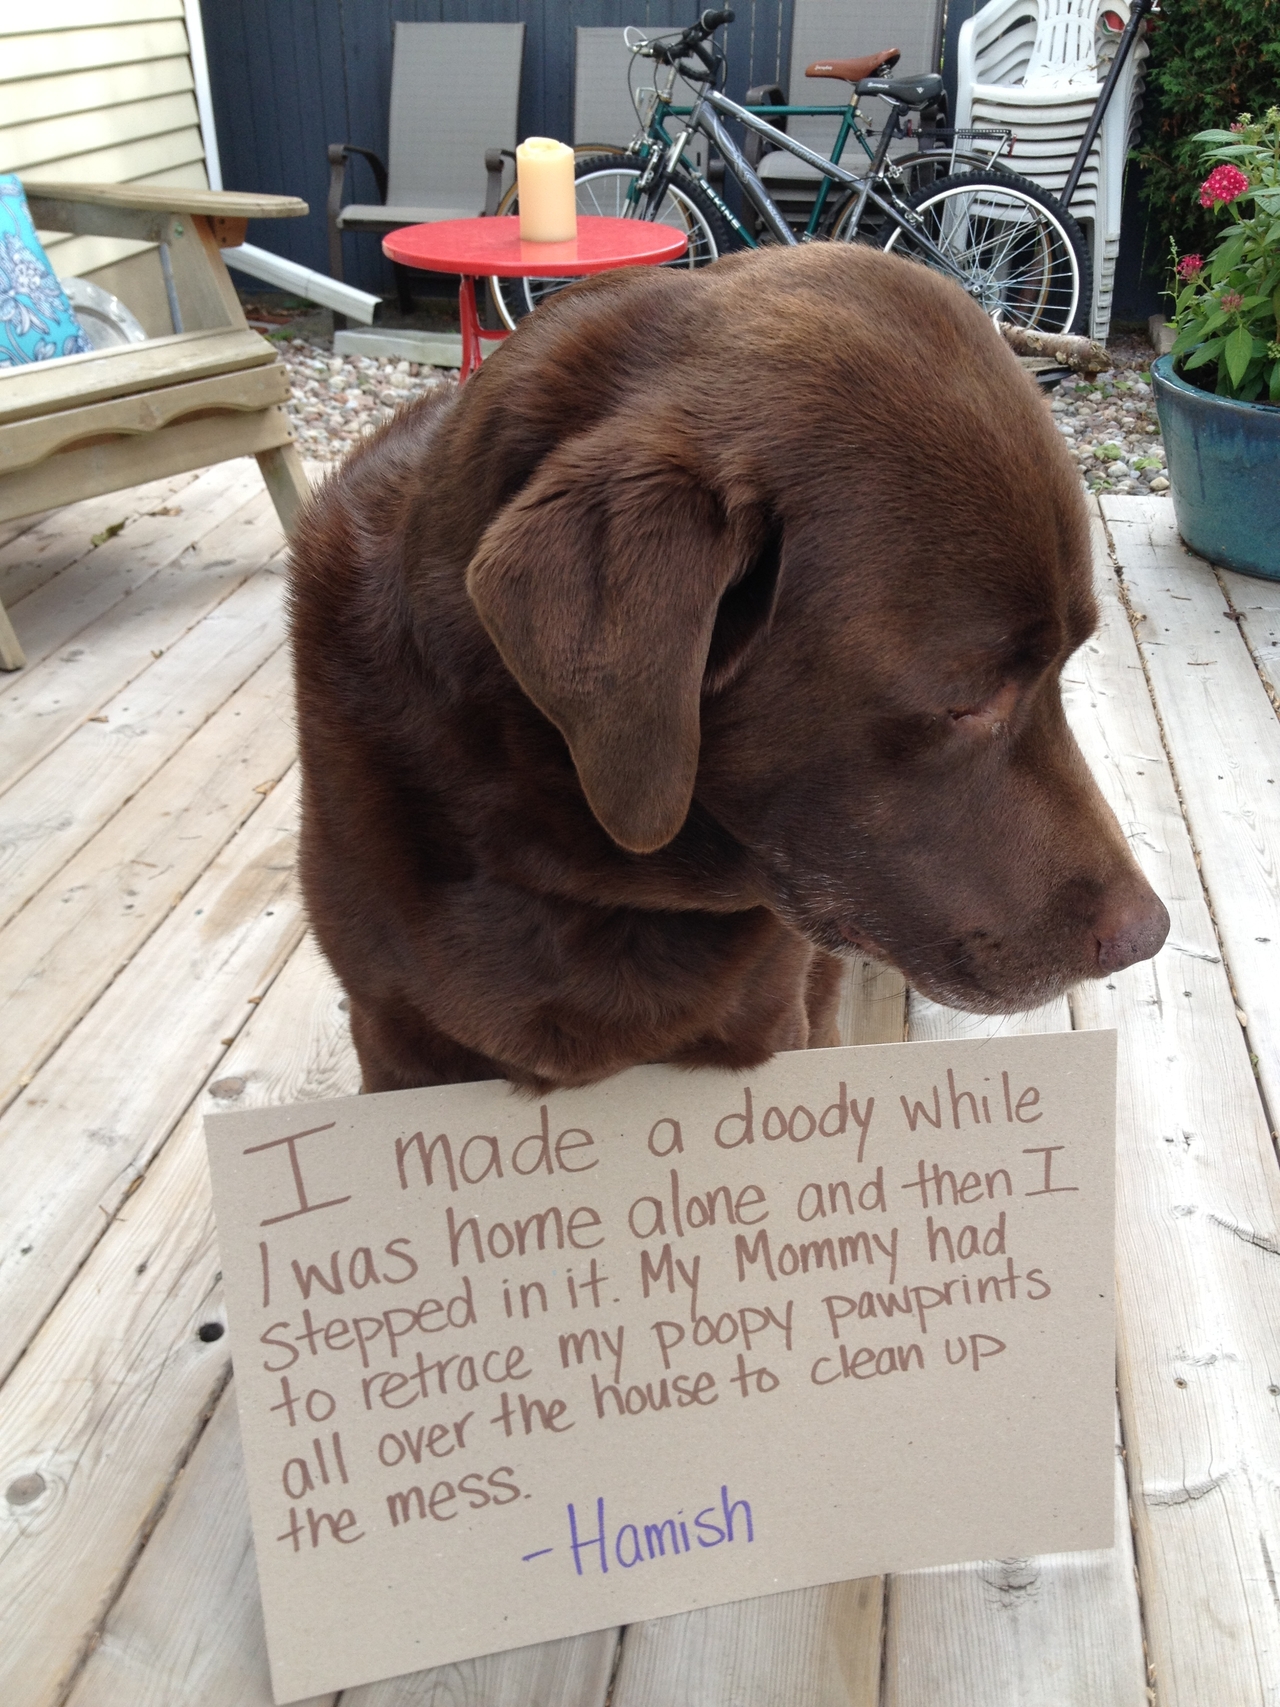 I made a doody while
I was home alone and then I
stepped in it. My Mommy had
to retrace my poopy pawprints
all over the house to clean up
the mess.
- Hamish